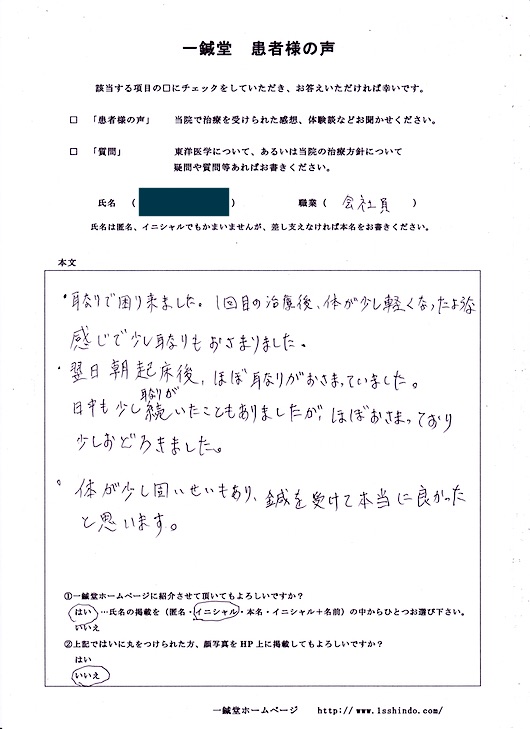 一鍼堂 患者様の声
該当する項目の□にチェックをしていただき、お答えいただければ幸いです。
□ 「患者様の声」 当院で治療を受けられた感想、体験談などお聞かせください。
□ 「質問」 東洋医学について、あるいは当院の治療方針について
疑問や質問等あればお書きください。
氏名 ( ) 職業 ( 会社員 )
氏名は匿名、イニシャルでもかまいませんが、差し支えなければ本名をお書きください。
本文
・耳なりで困り来ました。1回目の治療後、体が少し軽くなったような
感じで少し耳なりもおさまりました。
・翌日朝起床後、ほぼ耳なりがおさまっていました。
耳なりが
日中も少し続いたこともありましたが、ほぼおさまっており
少しおどろきました。
。体が少し固いせいもあり、鍼を受けて本当に良かった
と思います。
①一鍼堂ホームページに紹介させて頂いてもよろしいですか?
はい …氏名の掲載を(匿名・イニシャル・本名・イニシャル+名前)の中からひとつお選び下さい。
いいえ
②上記ではいに丸をつけられた方、顔写真をHP上に掲載してもよろしいですか?
はい
いいえ
一鍼堂ホームページ http://www.1sshindo.com/